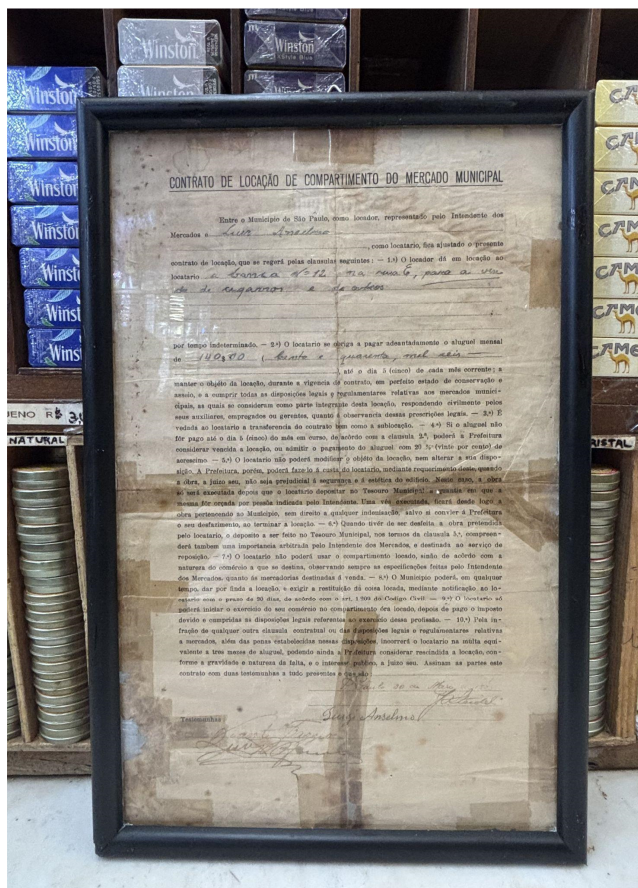 Winston
Winston
Winston
Winston
Winston
Winston
Winston
Winston
CAMEL
ENO R$
NATURAL
RISTAL
CONTRATO DE LOCAÇÃO DE COMPARTIMENTO DO MERCADO MUNICIPAL
Entre o Municipio de São Paulo, como locador, representado pelo Intendente dos
Mercados e Luiz Anselmo
, como locatario, fica ajustado o presente
contrato de locação, que se regerá pelas clausulas seguintes: — 1.ª) O locador dá em locação ao
locatario a banca Nº 12 na rua E, para a ven
da de cigarros e
por tempo indeterminado. — 2.ª) O locatario se obriga a pagar adeantadamente o aluguel mensal
de 140$00 (Cento e quarenta mil reis —
), até o dia 5 (cinco) de cada mês corrente; a
manter o objéto da locação, durante a vigencia do contrato, em perfeito estado de conservação e
asseio, e a cumprir todas as disposições legais e regulamentares relativas aos mercados munici-
cipais, as quais se consideram como parte integrante desta locação, respondendo civilmente pelos
seus auxiliares, empregados ou gerentes, quanto á observancia dessas prescrições legais. — 3.ª) É
vedada ao locatario a transferencia do contrato bem como a sublocação. — 4.ª) Si o aluguel não
fôr pago até o dia 5 (cinco) do mês em curso, de acôrdo com a clausula 2.ª, poderá a Prefeitura
considerar vencida a locação, ou admitir o pagamento do aluguel com 20 % (vinte por cento) de
acrescimo. — 5.ª) O locatario não poderá modificar o objéto da locação, nem alterar a sua dispo-
sição. A Prefeitura, porém, poderá faze-lo á custa do locatario, mediante requerimento deste, quando
a obra, a juizo seu, não seja prejudicial á segurança e á estética do edificio. Neste caso, a obra
só será executada depois que o locatario depositar no Tesouro Municipal a quantia em que a
mesma fôr orçada por pessôa indicada pelo Intendente. Uma vês executada, ficará desde logo a
obra pertencendo ao Municipio, sem direito a qualquer indenisação, salvo si convier á Prefeitura
o seu desfazimento, ao terminar a locação. — 6.ª) Quando tivér de ser desfeita, a obra pretendida
pelo locatario, o deposito a ser feito no Tesouro Municipal, nos termos da clausula 5.ª, compreen-
derá tambem uma importancia arbitrada pelo Intendente dos Mercados, e destinada ao serviço de
reposição. — 7.ª) O locatario não poderá usar o compartimento locado, sinão de acôrdo com a
natureza do comércio a que se destina, observando sempre as especificações feitas pelo Intendente
dos Mercados, quanto ás mercadorias destinadas á venda. — 8.ª) O Municipio poderá, em qualquer
tempo, dar por finda a locação, e exigir a restituição da coisa locada, mediante notificação ao lo-
catario com o prazo de 20 dias, de acôrdo com o art. 1.209 do Codigo Civil — 9.ª) O locatario só
poderá iniciar o exercicio do seu comércio no compartimento óra locado, depois de pago o imposto
devido e cumpridas as disposições legais referentes ao exercicio dessa profissão. — 10.ª) Pela in-
fração de qualquer outra clausula contratual ou das disposições legais e regulamentares relativas
a mercados, além das penas estabelecidas nessas disposições, incorrerá o locatario na multa equi-
valente a tres mezes de aluguel, podendo ainda a Prefeitura considerar rescindida a locação, con-
forme a gravidade e natureza da falta, e o interesse publico, a juizo seu. Assinam as partes este
contrato com duas testemunhas a tudo presentes e que são
Luiz Anselmo
Testemunhas